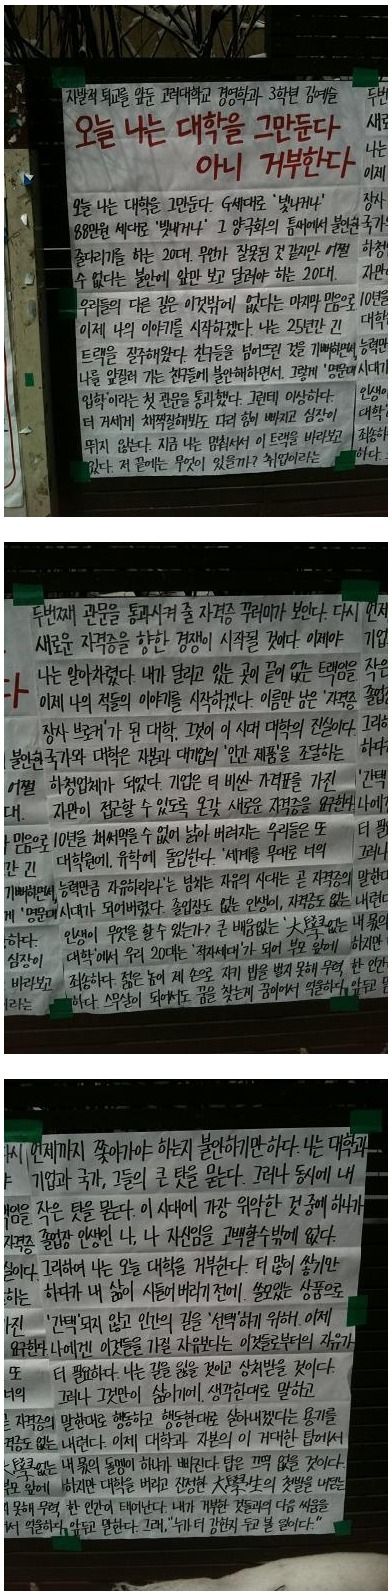 자발적 퇴교를 앞둔 고려대학교 경영학과 3학년 김예슬
오늘 나는 대학을 그만둔다
아니 거부한다
오늘 나는 대학을 그만둔다. G세대로 '빛나거나'
88만원 세대로 '빚내거나' 그 양극화의 틈새에서 불안한
줄다리기를 하는 20대. 무언가 잘못된 것 같지만 어쩔
수 없다는 불안에 앞만 보고 달려야 하는 20대.
우리들의 다른 길은 이것밖에 없다는 마지막 믿음으로
이제 나의 이야기를 시작하겠다. 나는 25년간 긴
트랙을 질주해왔다. 친구들을 넘어뜨린 것을 기뻐하면서
나를 앞질러 가는 친구들에 불안해하면서, 그렇게 '명문대
입학'이라는 첫 관문을 통과했다. 그런데 이상하다.
더 거세게 채찍질해봐도 다리 힘이 빠지고 심장이
뛰지 않는다. 지금 나는 멈춰서서 이 트랙을 바라보고
있다. 저 끝에는 무엇이 있을까? 취업이라는
두번째 관문을 통과시켜 줄 자격증 꾸러미가 보인다. 다시
새로운 자격증을 향한 경쟁이 시작될 것이다. 이제야
나는 알아차렸다. 내가 달리고 있는 곳이 끝이 없는 트랙임을
이제 나의 적들의 이야기를 시작하겠다. 이름만 남은 '자격증
장사 브로커'가 된 대학. 그것이 이 시대 대학의 진실이다.
국가와 대학은 자본과 대기업의 '인간 제품'을 조달하는
하청업체가 되었다. 기업은 더 비싼 자격표를 가진
자만이 접근할 수 있도록 온갖 새로운 자격증을 요구한다
10년을 채 써먹을 수 없어 낡아 버려지는 우리들은 또
대학원에, 유학에 돌입한다. '세계를 무대로 너의
능력만큼 자유하리라'는 넘치는 자유의 시대는 곧 자격증의
시대가 되어버렸다. 졸업장도 없는 인생이, 자격증도 없는
인생이 무엇을 할 수 있는가? 큰 배움없는 '大學없는
대학'에서 우리 20대는 '적자세대'가 되어 부모 앞에
죄송하다. 젊은 놈이 제 손으로 자기 밥을 벌지 못해 무력
하다. 스무살이 되어서도 꿈을 찾는게 꿈이어서 억울하다
언제까지 쫓아가야 하는지 불안하기만 하다. 나는 대학과
기업과 국가, 그들의 큰 탓을 묻는다. 그러나 동시에 내
작은 탓을 묻는다. 이 시대에 가장 위악한 것 중에 하나가
졸업장 인생인 나, 나 자신임을 고백할 수밖에 없다.
그리하여 나는 오늘 대학을 거부한다. 더 많이 쌓기만
하다가 내 삶이 시들어 버리기 전에. 쓸모있는 상품으로
'간택'되지 않고 인간의 길을 '선택'하기 위해. 이제
나에겐 이것들을 가질 자유보다는 이것들로부터의 자유가
더 필요하다. 나는 길을 잃을 것이고 상처받을 것이다.
그러나 그것만이 삶이기에, 생각한대로 말하고
말한대로 행동하고 행동한대로 살아내겠다는 용기를
내련다. 이제 대학과 자본의 이 거대한 탑에서
내 몫의 돌멩이 하나가 빠진다. 탑은 끄떡 없을 것이다.
하지만 대학을 버리고 진정한 大學生의 첫발을 내딛는
한 인간이 태어난다. 내가 거부한 것들과의 다음 싸움을
앞두고 말한다. 그래, "누가 더 강한지 두고 볼 일이다."